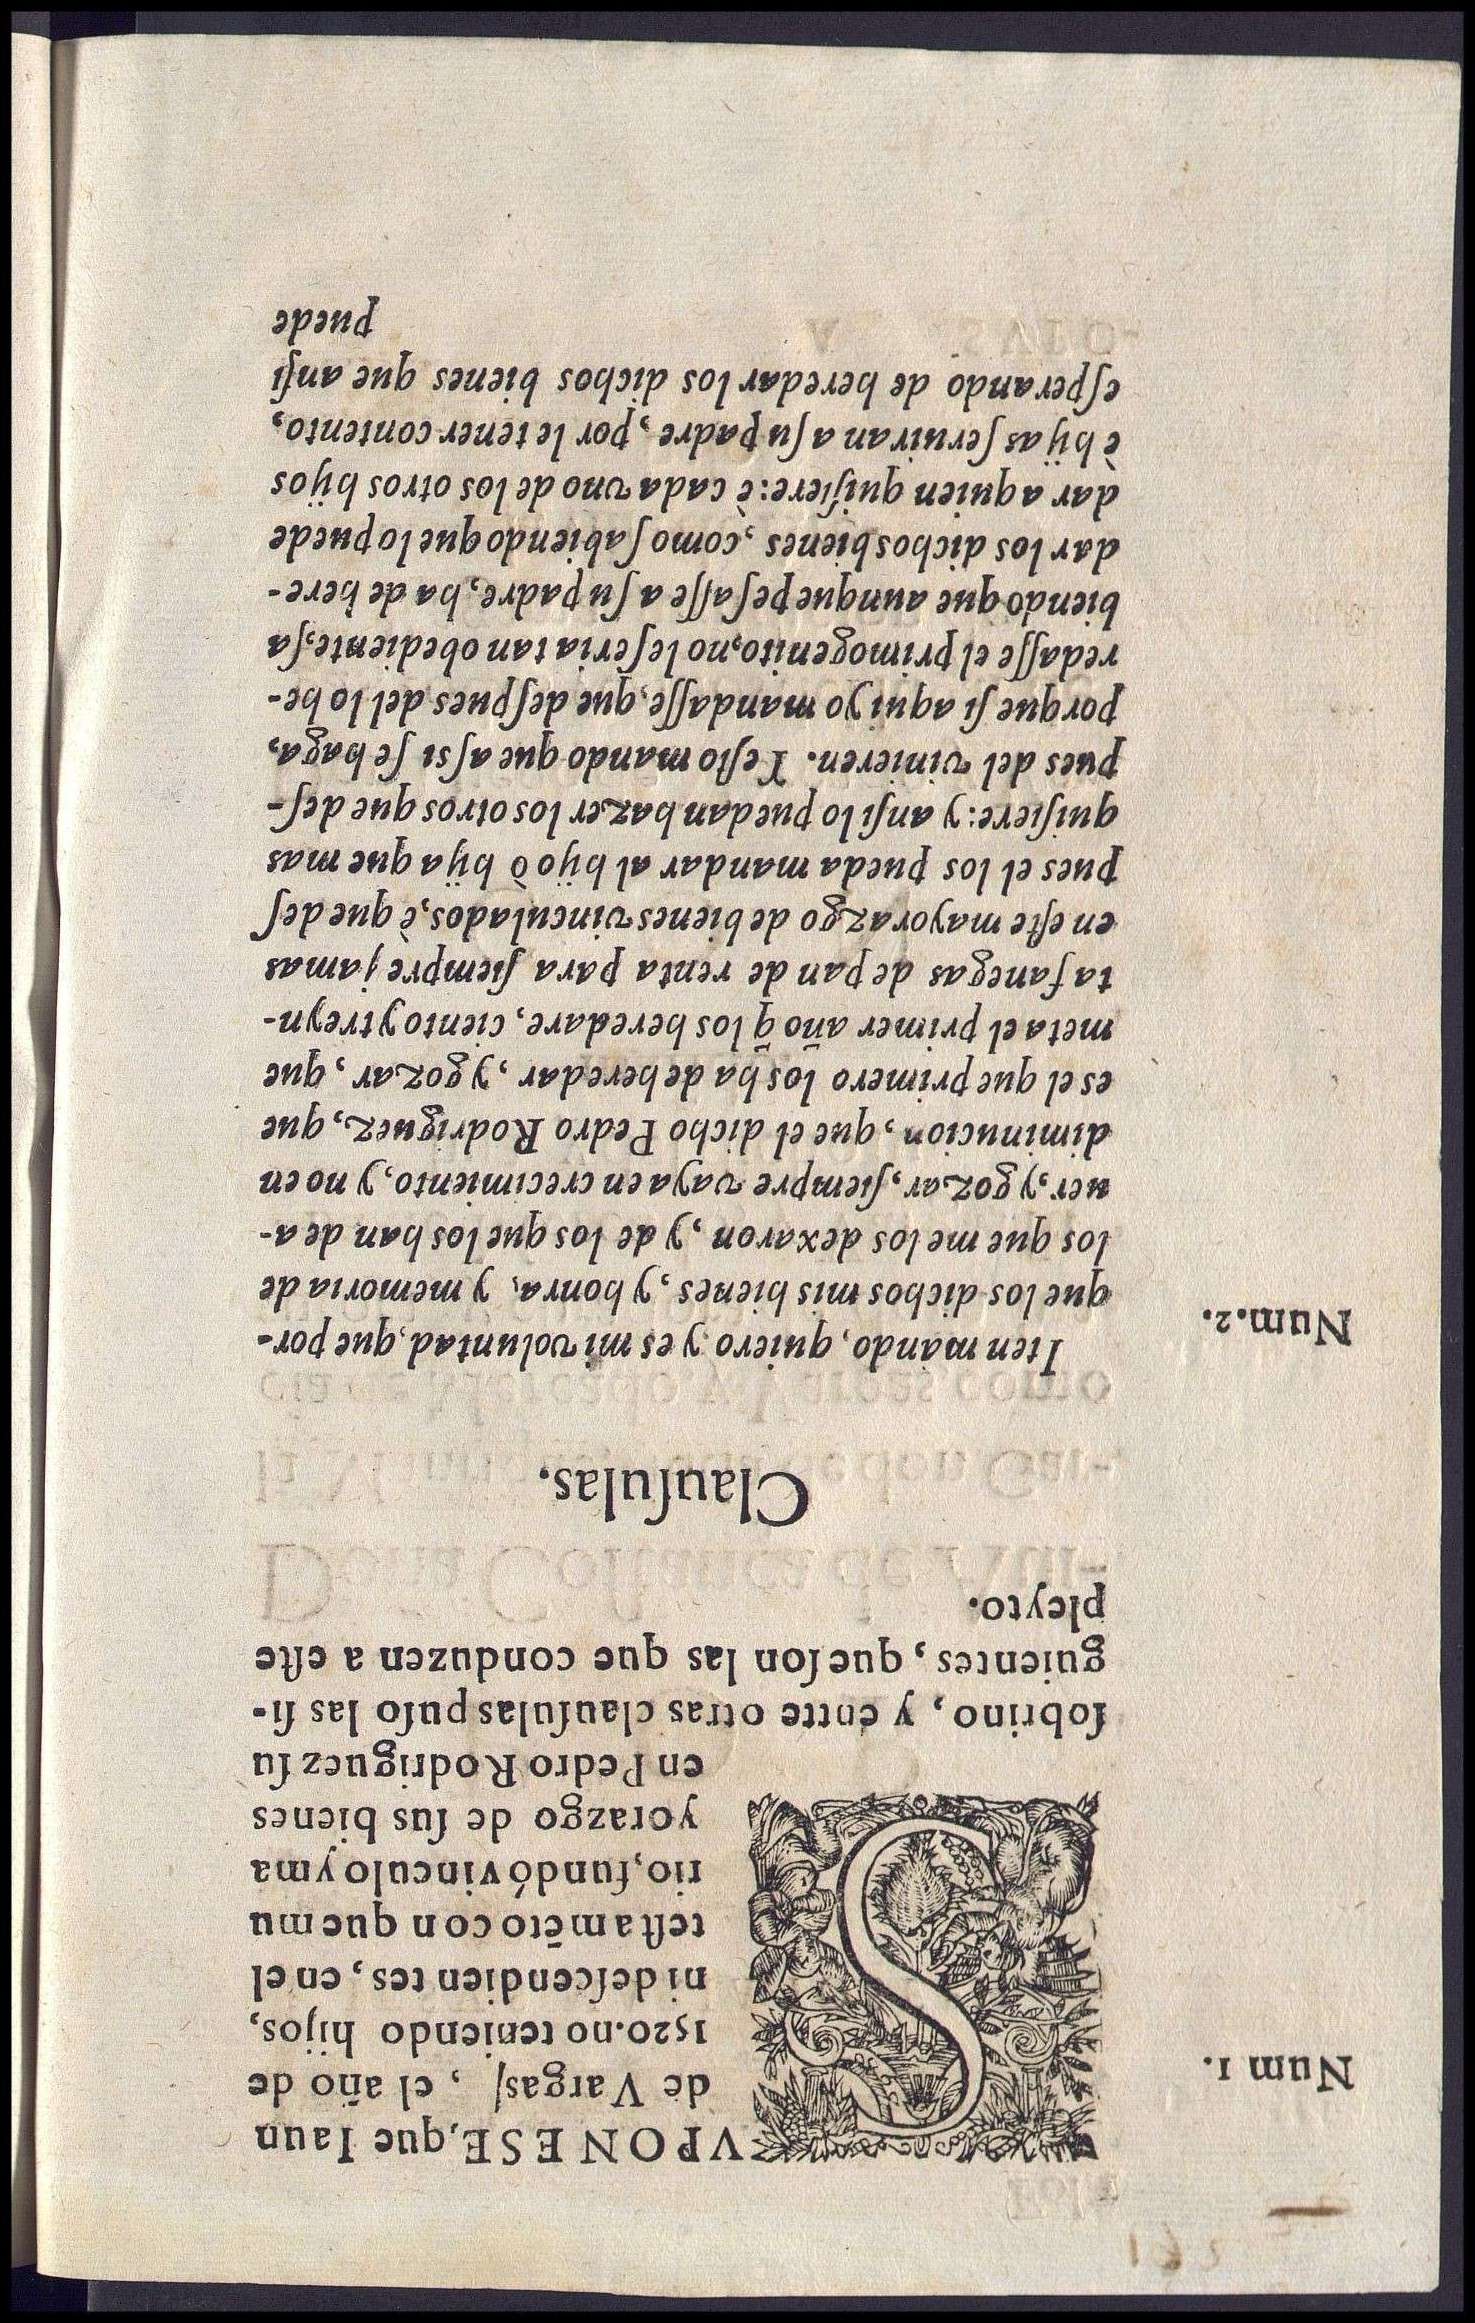 Num 1.
SVPONESE, que Iaun
de Vargas, el año de
1520. no teniendo hijos,
ni descendientes, en el
testamẽto con que mu
rio, fundó vinculo y ma
yorazgo de sus bienes
en Pedro Rodriguez su
sobrino, y entre otras clausulas puso las si-
guientes, que son las que conduzen a este
pleyto.
Clausulas.
Num. 2.
Iten mando, quiero y es mi voluntad, que por-
que los dichos mis bienes, y honra, y memoria de
los que me los dexaron, y de los que los han de a-
uer, y gozar, siempre vaya en crecimiento, y no en
diminucion, que el dicho Pedro Rodriguez, que
es el que primero los ha de heredar, y gozar, que
meta el primer año q̃ los heredare, ciento y treyn-
ta fanegas de pan de renta para siempre jamas
en este mayorazgo de bienes vinculados, è que des
pues el los pueda mandar al hijo ò hija que mas
quisiere: y ansi lo puedan hazer los otros que des-
pues del vinieren. Y esto mando que assi se haga,
porque si aqui yo mandasse, que despues del lo he-
redasse el primogenito, no le seria tan obediente, sa
biendo que aunque pesasse a su padre, ha de here-
dar los dichos bienes, como sabiendo que lo puede
dar a quien quisiere: è cada vno de los otros hijos
è hijas seruiran a su padre, por le tener contento,
esperando de heredar los dichos bienes que ansi
puede